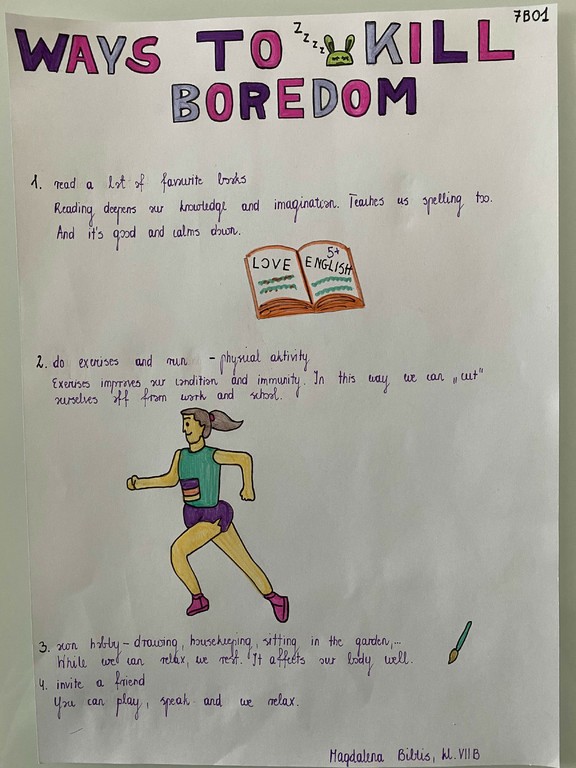 7B01
WAYS TO zzzz KILL
BOREDOM
1. read a lot of favourite books
Reading deepens our knowledge and imagination. Teaches us spelling too.
And it's good and calms down.
LOVE
5+
ENGLISH
2. do exercises and run - physical aktivity
Exercises improves our condition and immunity. In this way we can „cut"
ourselves off from work and school.
3. own hobby - drawing, housekeeping, sitting in the garden,...
While we can relax, we rest. It affects our body well.
4. invite a friend
You can play, speak and we relax.
Magdalena Bibtis, kl. VII B